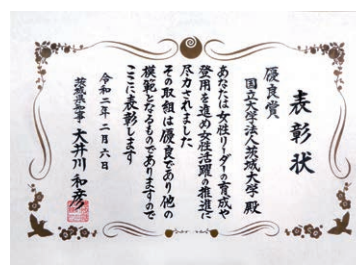 表彰状
優良賞
国立大学法人茨城大学 殿
あなたは女性リーダーの育成や
登用を進め女性活躍の推進に
尽力されました
その取組は優良であり他の
模範となるものでありますので
ここに表彰します
令和二年二月六日
茨城県知事 大井川 和彦